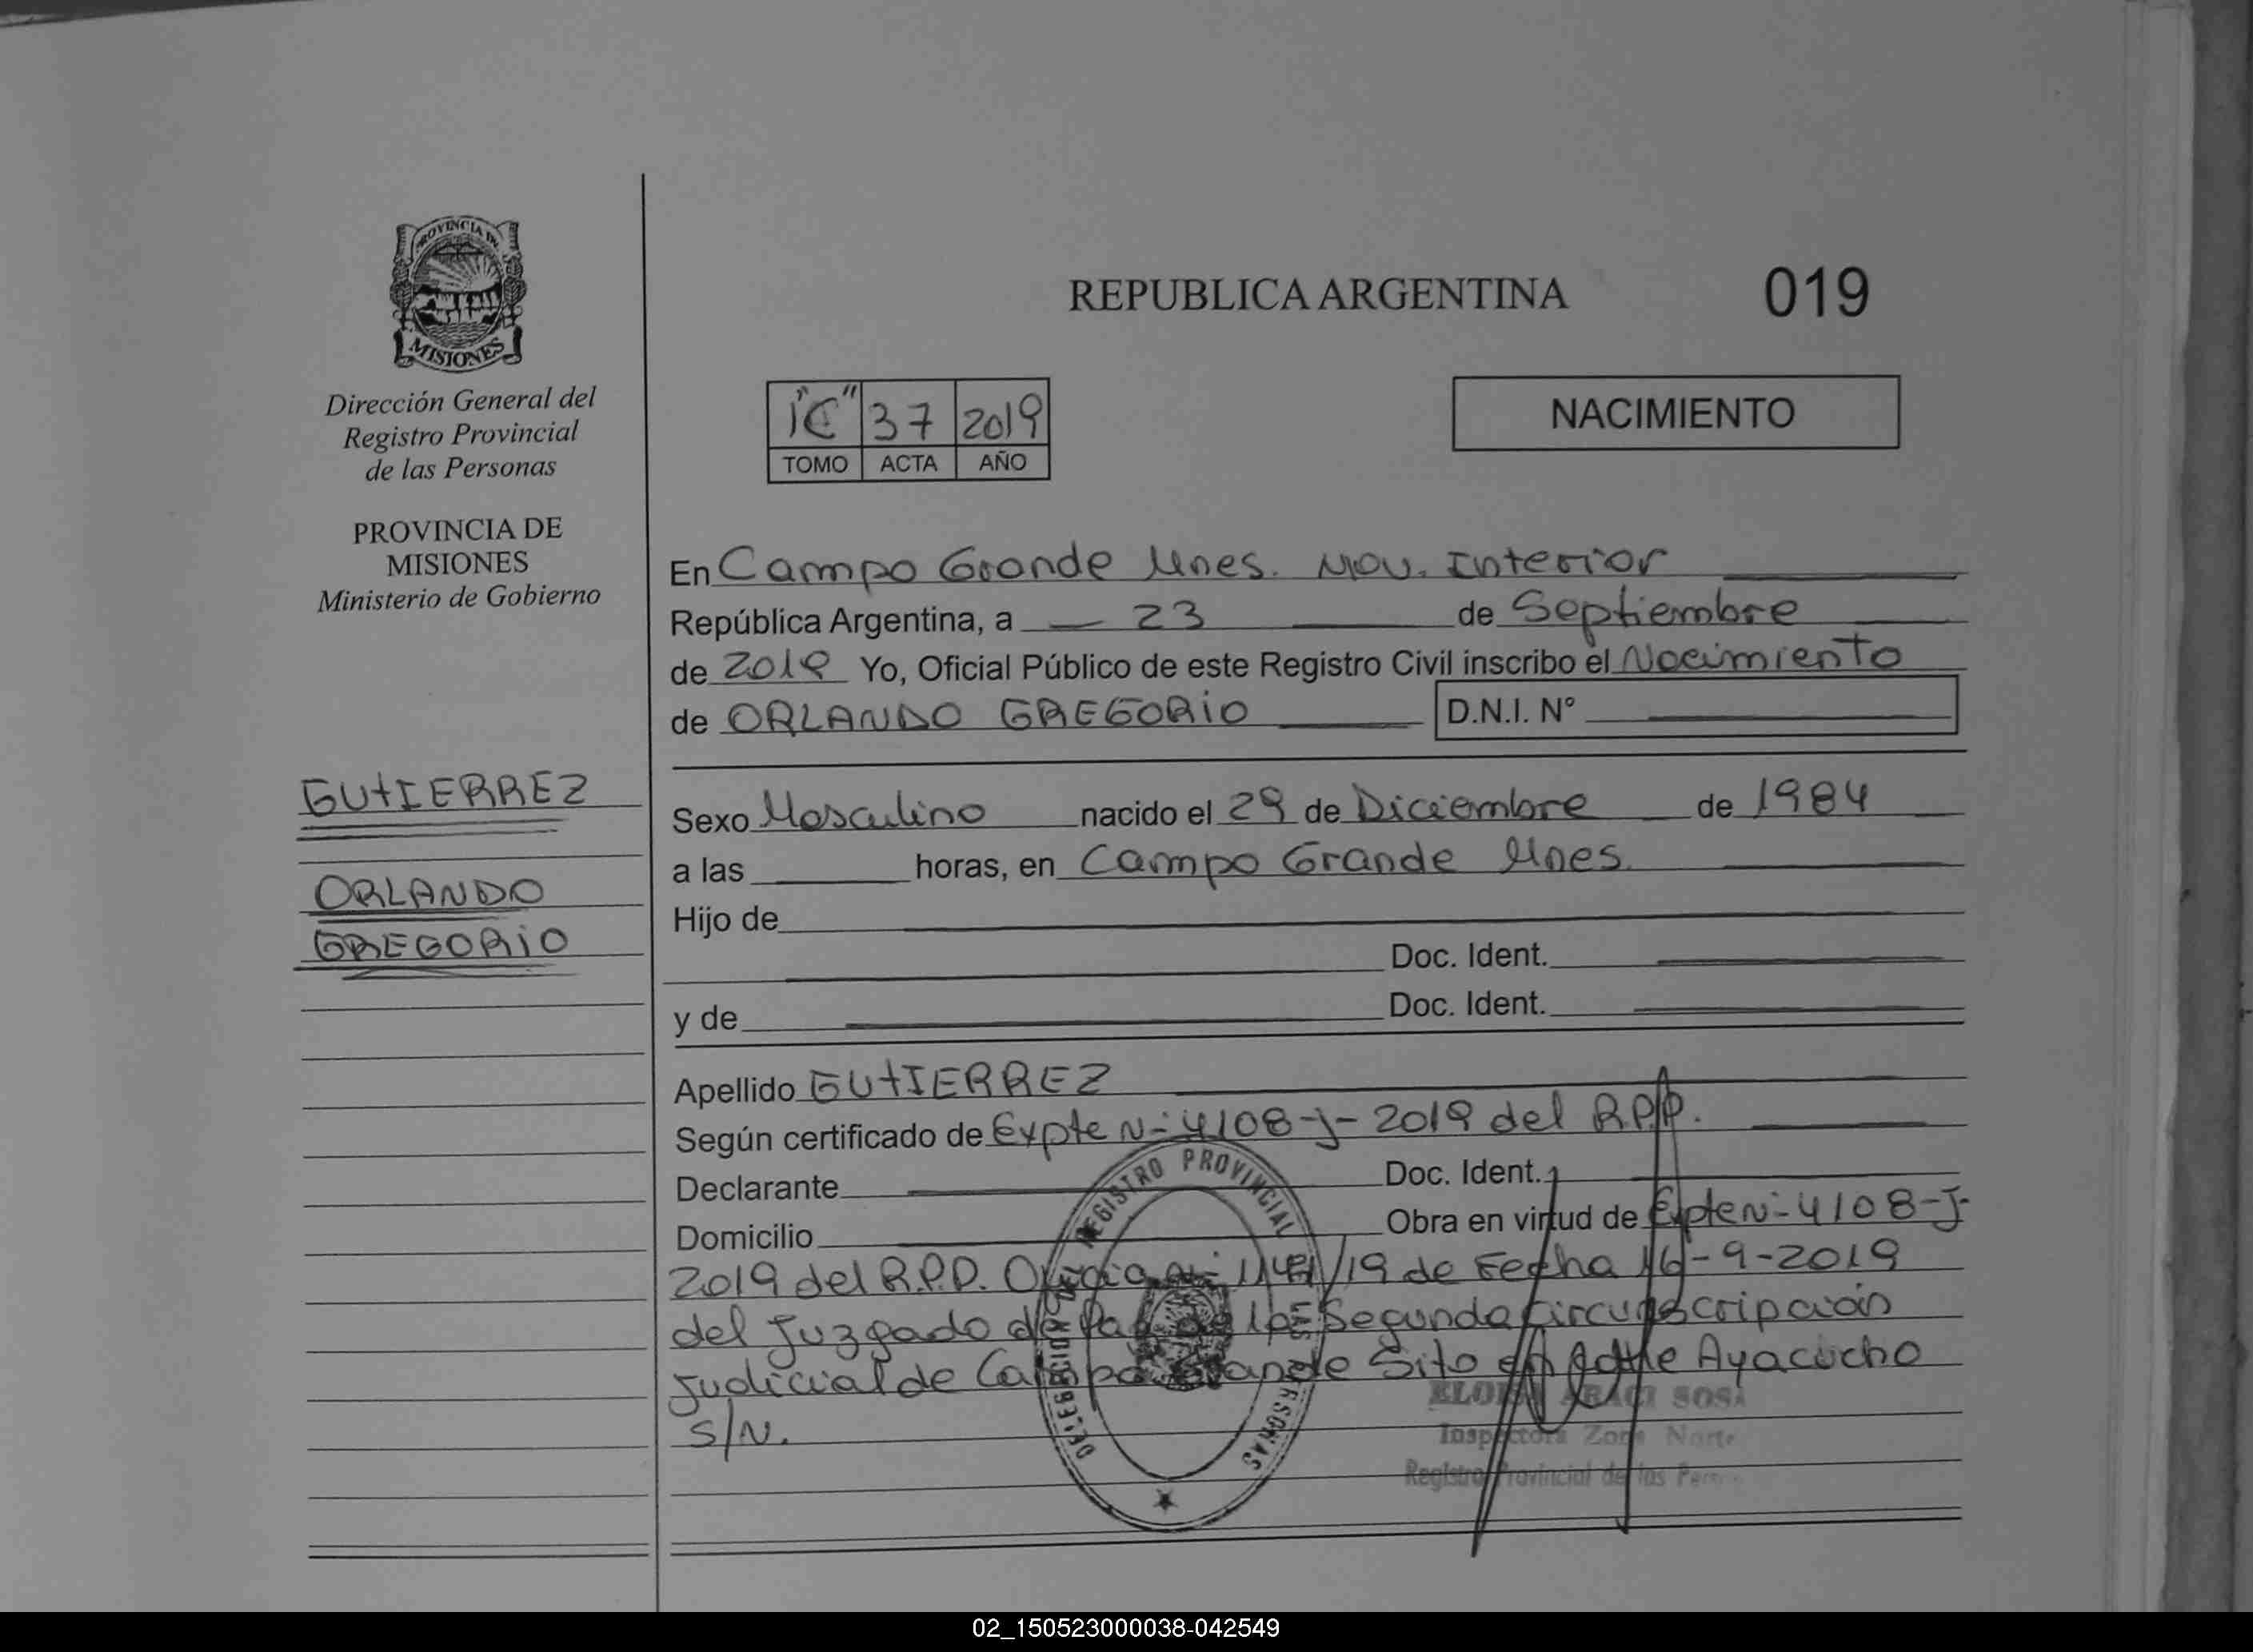 PROVINCIA DE
MISIONES
Dirección General del
Registro Provincial
de las Personas
PROVINCIA DE
MISIONES
Ministerio de Gobierno
GUTIERREZ
ORLANDO
GREGORIO
REPUBLICA ARGENTINA 019
37 2019
TOMO ACTA AÑO
NACIMIENTO
En Campo Grande Mnes. Mov. Interior
República Argentina, a 23 de Septiembre
de 2019 Yo, Oficial Público de este Registro Civil inscribo el Nacimiento
de ORLANDO GREGORIO D.N.I. N°
Sexo Masculino nacido el 29 de Diciembre de 1984
a las horas, en Campo Grande Mnes.
Hijo de
Doc. Ident.
y de Doc. Ident.
Apellido GUTIERREZ
Según certificado de Expte N- 4108-J- 2019 del R.P.P.
Declarante Doc. Ident.
Domicilio Obra en virtud de Expte N- 4108-J-
2019 del R.P.P. Oficio /19 de Fecha 16-9-2019
del Juzgado de Paz de la Segunda Circunscripción
Judicial de Campo Grande Sito en calle Ayacucho
S/N.
REGISTRO PROVINCIAL DE LAS PERSONAS
ELOISA ARACI SOSA
Inspectora Zona Norte
Registro Provincial de las Pers
02_150523000038-042549